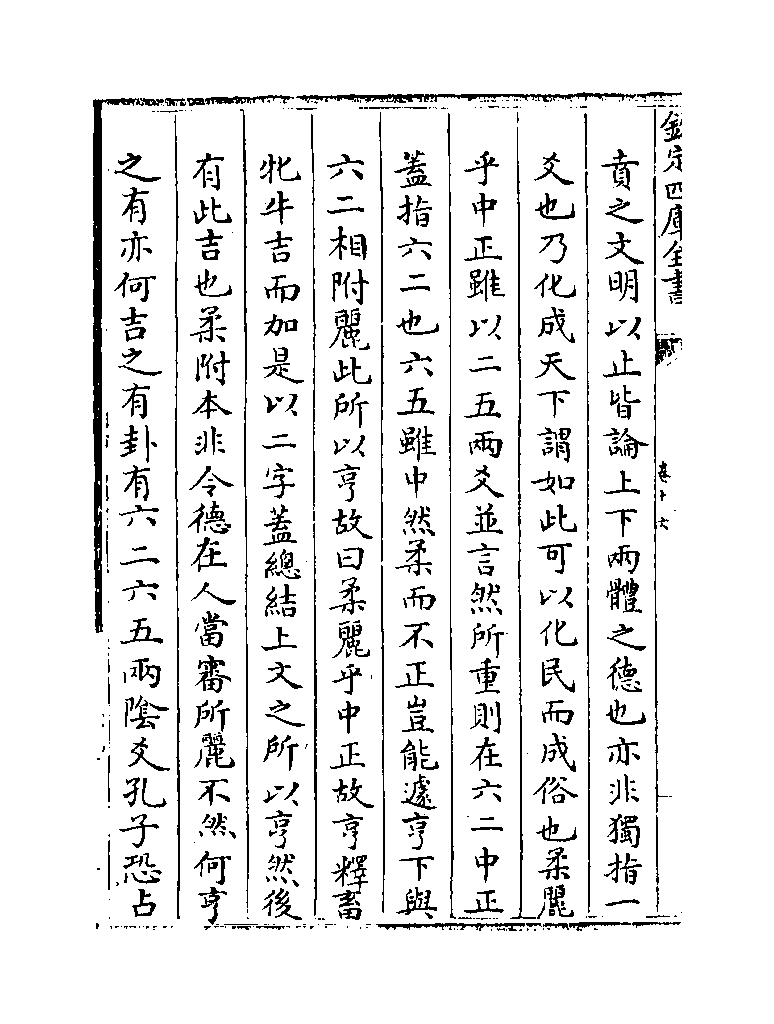 欽定四庫全書
卷十六
賁之文明以止皆論上下兩體之德也亦非獨指一
爻也乃化成天下謂如此可以化民而成俗也柔麗
乎中正雖以二五兩爻並言然所重則在六二中正
蓋指六二也六五雖中然柔而不正豈能遽亨下與
六二相附麗此所以亨故曰柔麗乎中正故亨釋畜
牝牛吉而加是以二字蓋總結上文之所以亨然後
有此吉也柔附本非令德在人當審所麗不然何亨
之有亦何吉之有卦有六二六五兩陰爻孔子恐占